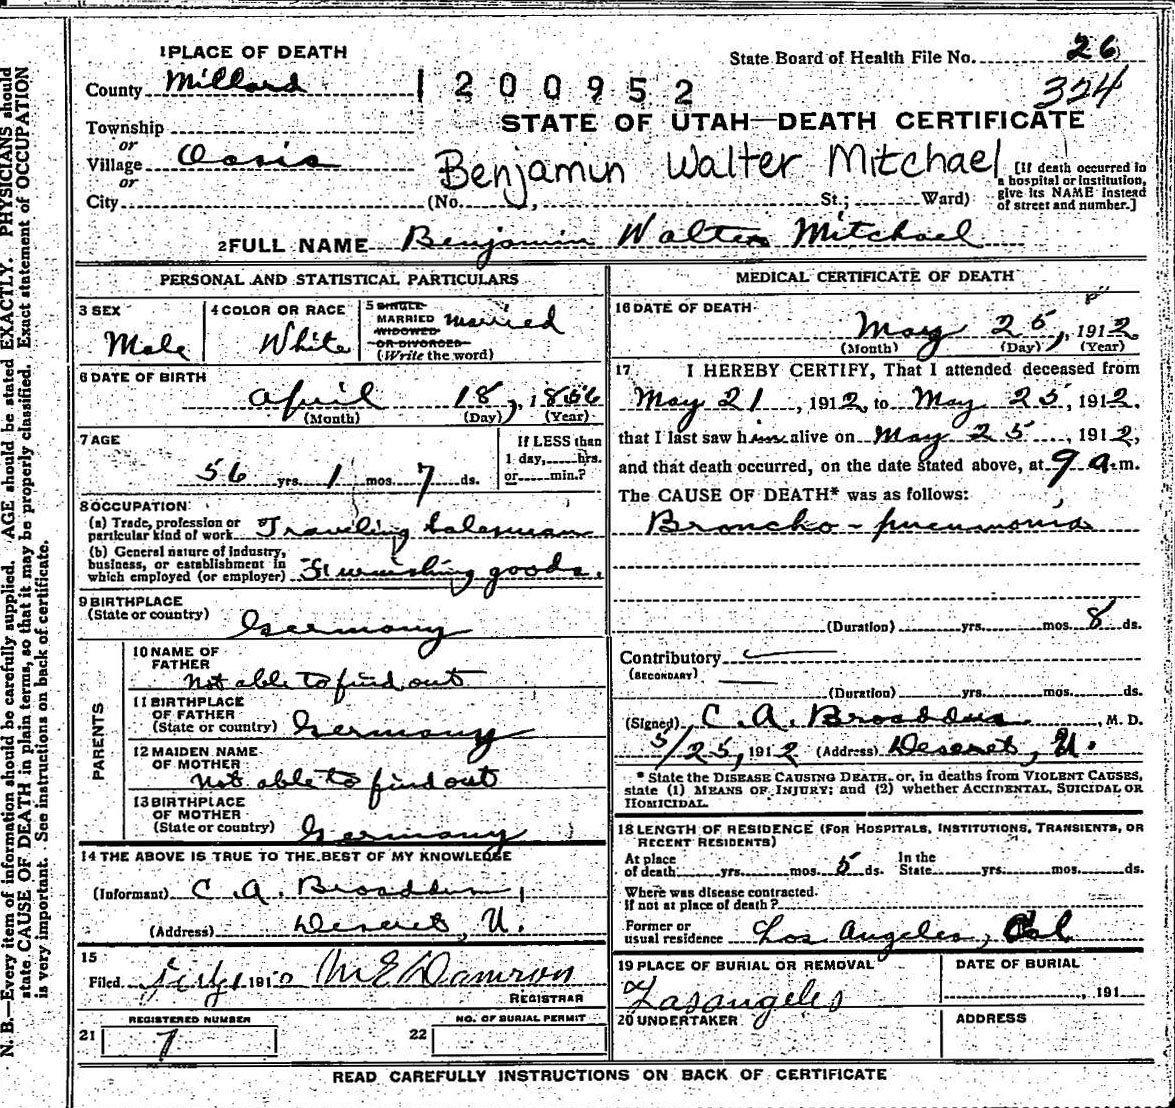 N. B.—Every item of information should be carefully supplied. AGE should be stated EXACTLY. PHYSICIANS should
state CAUSE OF DEATH in plain terms, so that it may be properly classified. Exact statement of OCCUPATION
is very important. See instructions on back of certificate.
1 PLACE OF DEATH
State Board of Health File No. 26
County Millard
1200952
324
Township
STATE OF UTAH—DEATH CERTIFICATE
or
Village Oasis
Benjamin Walter Mitchael
or
City (No. , St.; Ward)
[If death occurred in
a hospital or institution,
give its NAME instead
of street and number.]
2 FULL NAME Benjamin Walter Mitchael
PERSONAL AND STATISTICAL PARTICULARS
3 SEX
Male
4 COLOR OR RACE
White
5 SINGLE
MARRIED
WIDOWED
OR DIVORCED
(Write the word)
married
6 DATE OF BIRTH
April 18, 1856
(Month) (Day) (Year)
7 AGE
56 yrs. 1 mos. 7 ds.
If LESS than
1 day, hrs.
or min.?
8 OCCUPATION
(a) Trade, profession or
particular kind of work Traveling salesman
(b) General nature of industry,
business, or establishment in
which employed (or employer) Furnishing goods.
9 BIRTHPLACE
(State or country) Germany
PARENTS
10 NAME OF
FATHER
Not able to find out
11 BIRTHPLACE
OF FATHER
(State or country) Germany
12 MAIDEN NAME
OF MOTHER
Not able to find out
13 BIRTHPLACE
OF MOTHER
(State or country) Germany
14 THE ABOVE IS TRUE TO THE BEST OF MY KNOWLEDGE
(Informant) C. A. Broaddus,
(Address) Deseret, U.
15
Filed 191 M E Damron
REGISTRAR
21 REGISTERED NUMBER
7
22 NO. OF BURIAL PERMIT
MEDICAL CERTIFICATE OF DEATH
16 DATE OF DEATH
May 25, 1912
(Month) (Day) (Year)
17 I HEREBY CERTIFY, That I attended deceased from
May 21, 1912, to May 25, 1912.
that I last saw him alive on May 25, 1912,
and that death occurred, on the date stated above, at 9 a.m.
The CAUSE OF DEATH* was as follows:
Broncho-pneumonia
(Duration) yrs. mos. 8 ds.
Contributory
(SECONDARY)
(Duration) yrs. mos. ds.
(Signed) C. A. Broaddus, M. D.
5/25, 1912 (Address) Deseret, U.
* State the DISEASE CAUSING DEATH, or, in deaths from VIOLENT CAUSES,
state (1) MEANS OF INJURY; and (2) whether ACCIDENTAL, SUICIDAL OR
HOMICIDAL.
18 LENGTH OF RESIDENCE (FOR HOSPITALS, INSTITUTIONS, TRANSIENTS, OR
RECENT RESIDENTS)
At place
of death yrs. mos. 5 ds.
In the
State yrs. mos. ds.
Where was disease contracted.
If not at place of death?
Former or
usual residence Los Angeles, Cal
19 PLACE OF BURIAL OR REMOVAL
Lasangeles
DATE OF BURIAL
, 191
20 UNDERTAKER
ADDRESS
READ CAREFULLY INSTRUCTIONS ON BACK OF CERTIFICATE